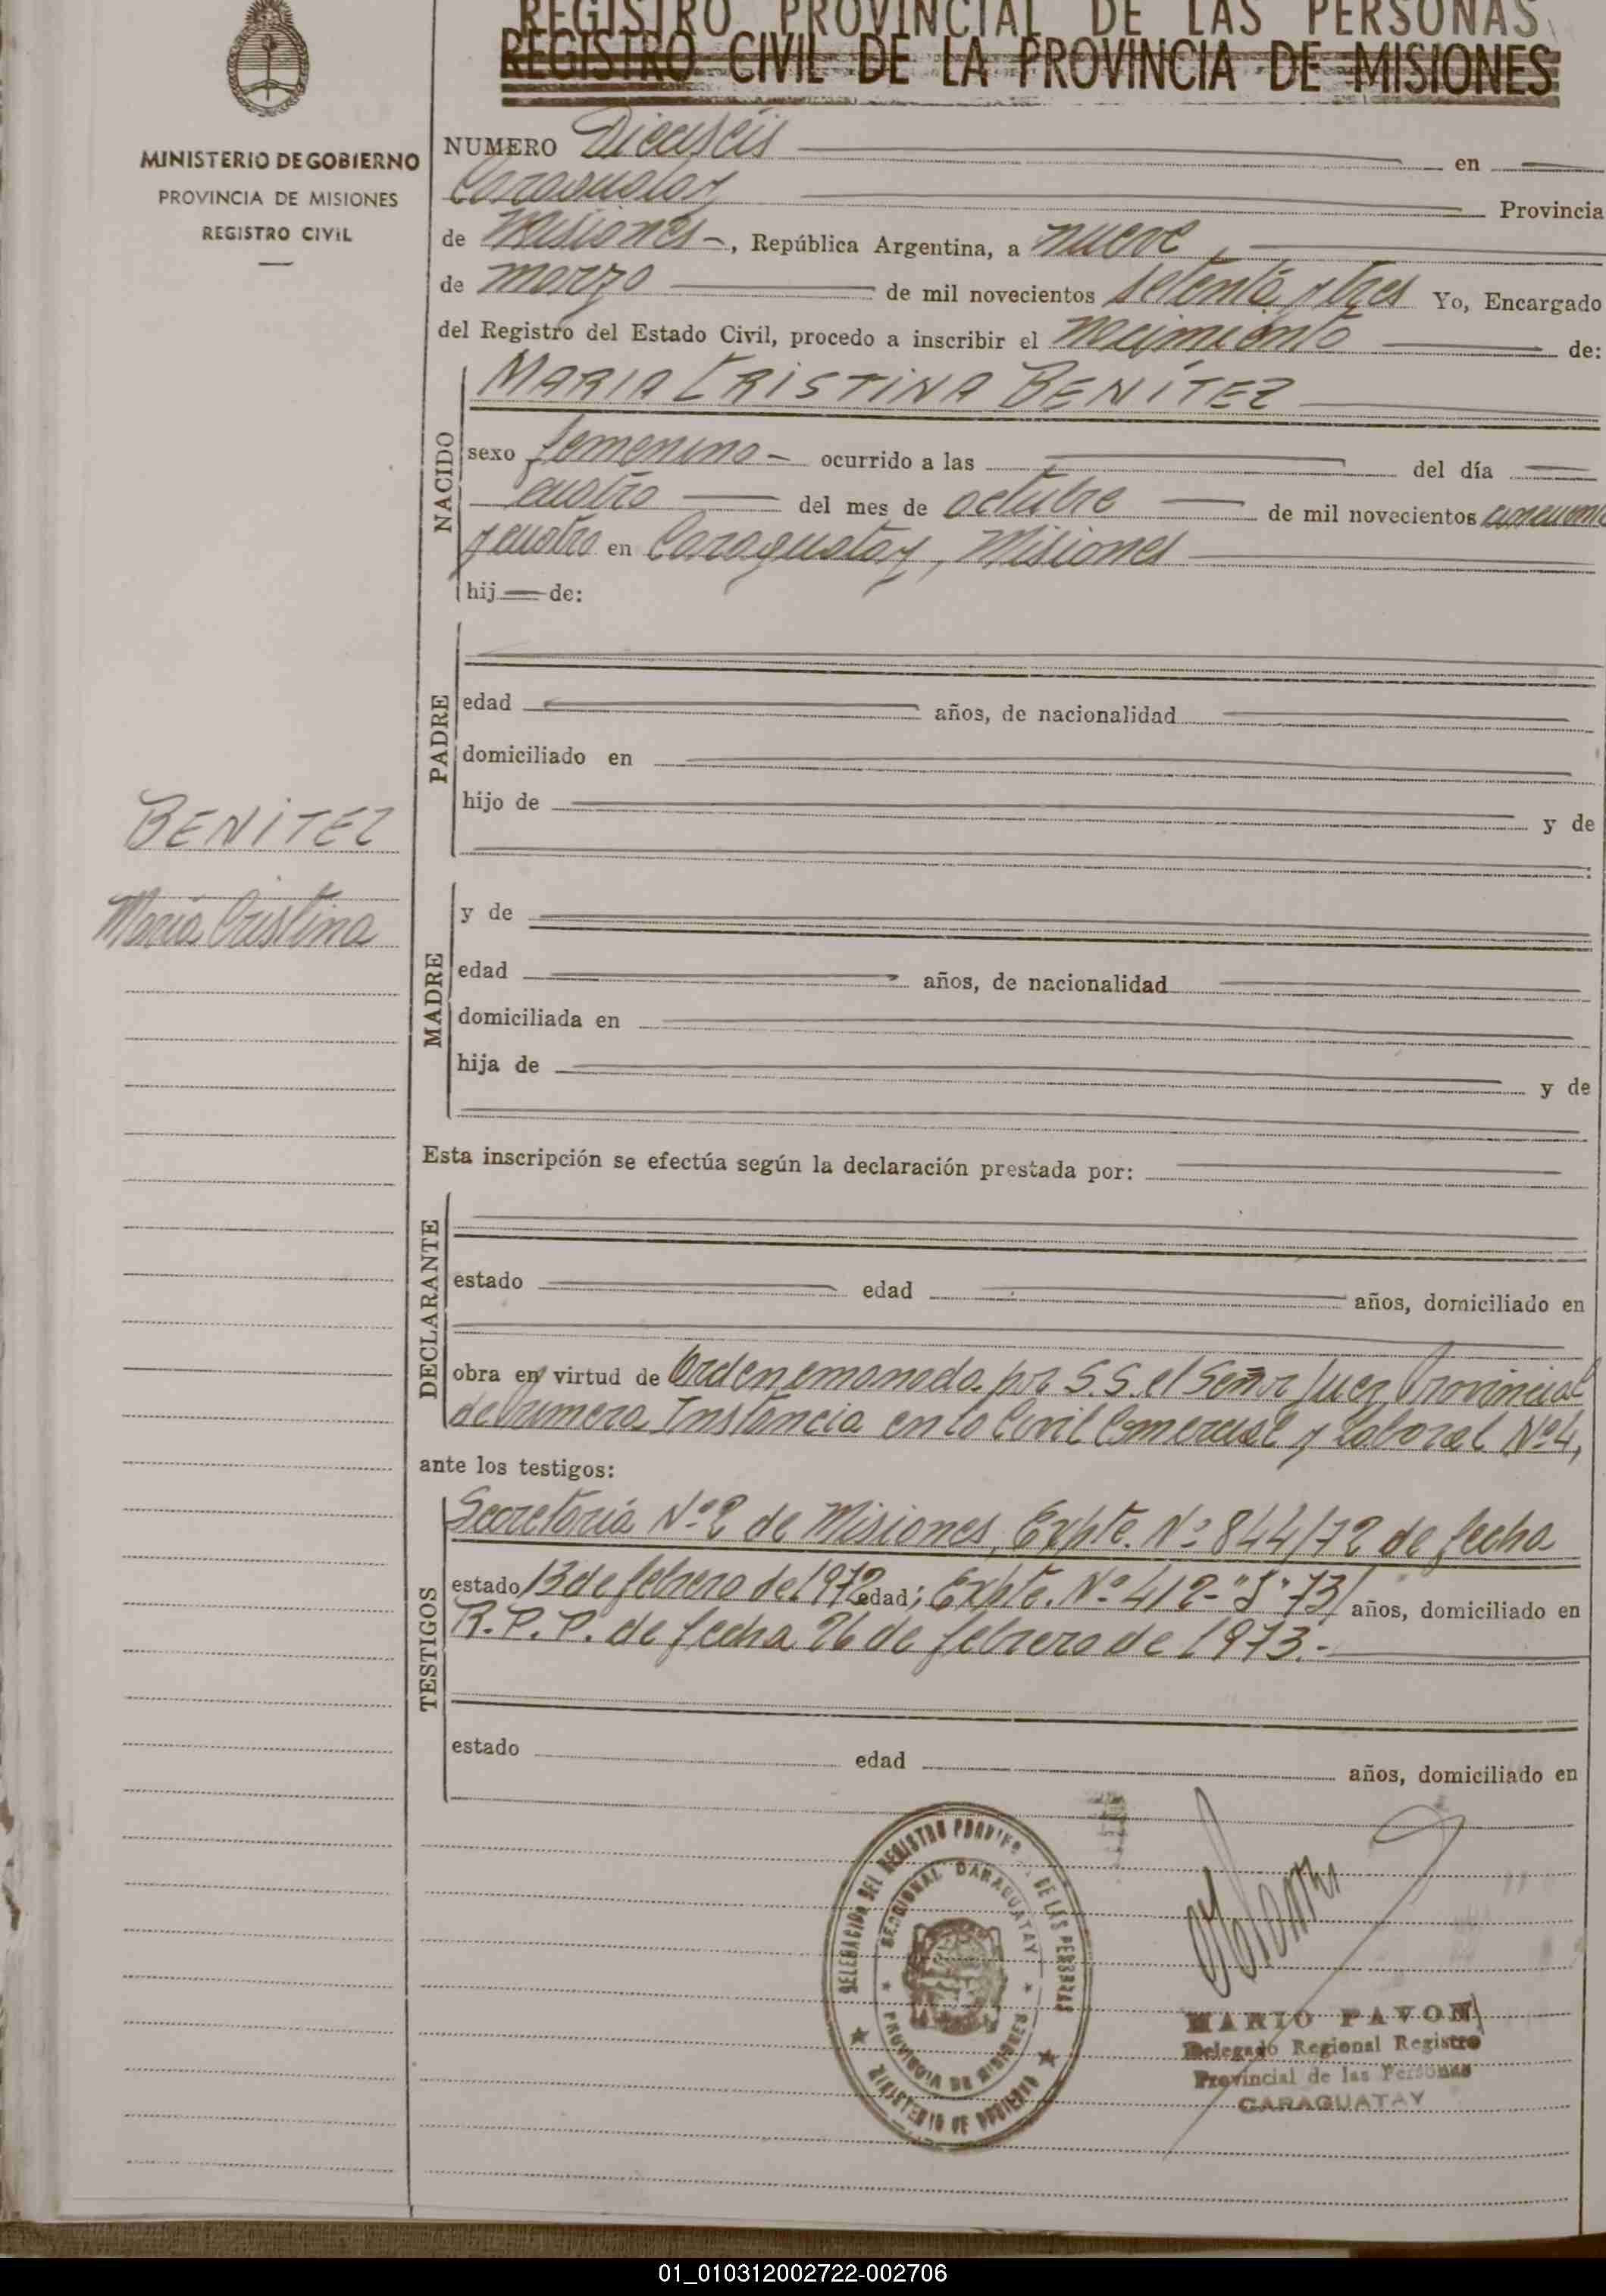 REGISTRO PROVINCIAL DE LAS PERSONAS
REGISTRO CIVIL DE LA PROVINCIA DE MISIONES
MINISTERIO DE GOBIERNO
PROVINCIA DE MISIONES
REGISTRO CIVIL
NUMERO Dieciséis en
Caraguatay Provincia
de Misiones -, República Argentina, a nueve
de marzo de mil novecientos setenta y tres Yo, Encargado
del Registro del Estado Civil, procedo a inscribir el nacimiento de:
NACIDO
MARIA CRISTINA BENÍTEZ
sexo femenino - ocurrido a las del día
cuatro del mes de octubre de mil novecientos cincuenta
y cuatro en Caraguatay, Misiones
hij de:
PADRE
edad años, de nacionalidad
domiciliado en
hijo de y de
BENÍTEZ
María Cristina
MADRE
y de
edad años, de nacionalidad
domiciliada en
hija de y de
Esta inscripción se efectúa según la declaración prestada por:
DECLARANTE
estado edad años, domiciliado en
obra en virtud de Orden emanada por S.S. el Señor Juez Provincial
de Primera Instancia en lo Civil Comercial y Laboral Nº 4,
ante los testigos:
TESTIGOS
Secretaría Nº 2 de Misiones, Expte. Nº 844/72 de fecha
estado 13 de febrero de 1972 edad ; Expte. Nº 412-"J" 73/ años, domiciliado en
R.P.P. de fecha 26 de febrero de 1973.-
estado edad años, domiciliado en
DELEGACION DEL REGISTRO PROVINCIAL DE LAS PERSONAS
SECCIONAL CARAGUATAY
PROVINCIA DE MISIONES
MINISTERIO DE GOBIERNO
MARIO PAVON
Delegado Regional Registro
Provincial de las Personas
CARAGUATAY
01_010312002722-002706